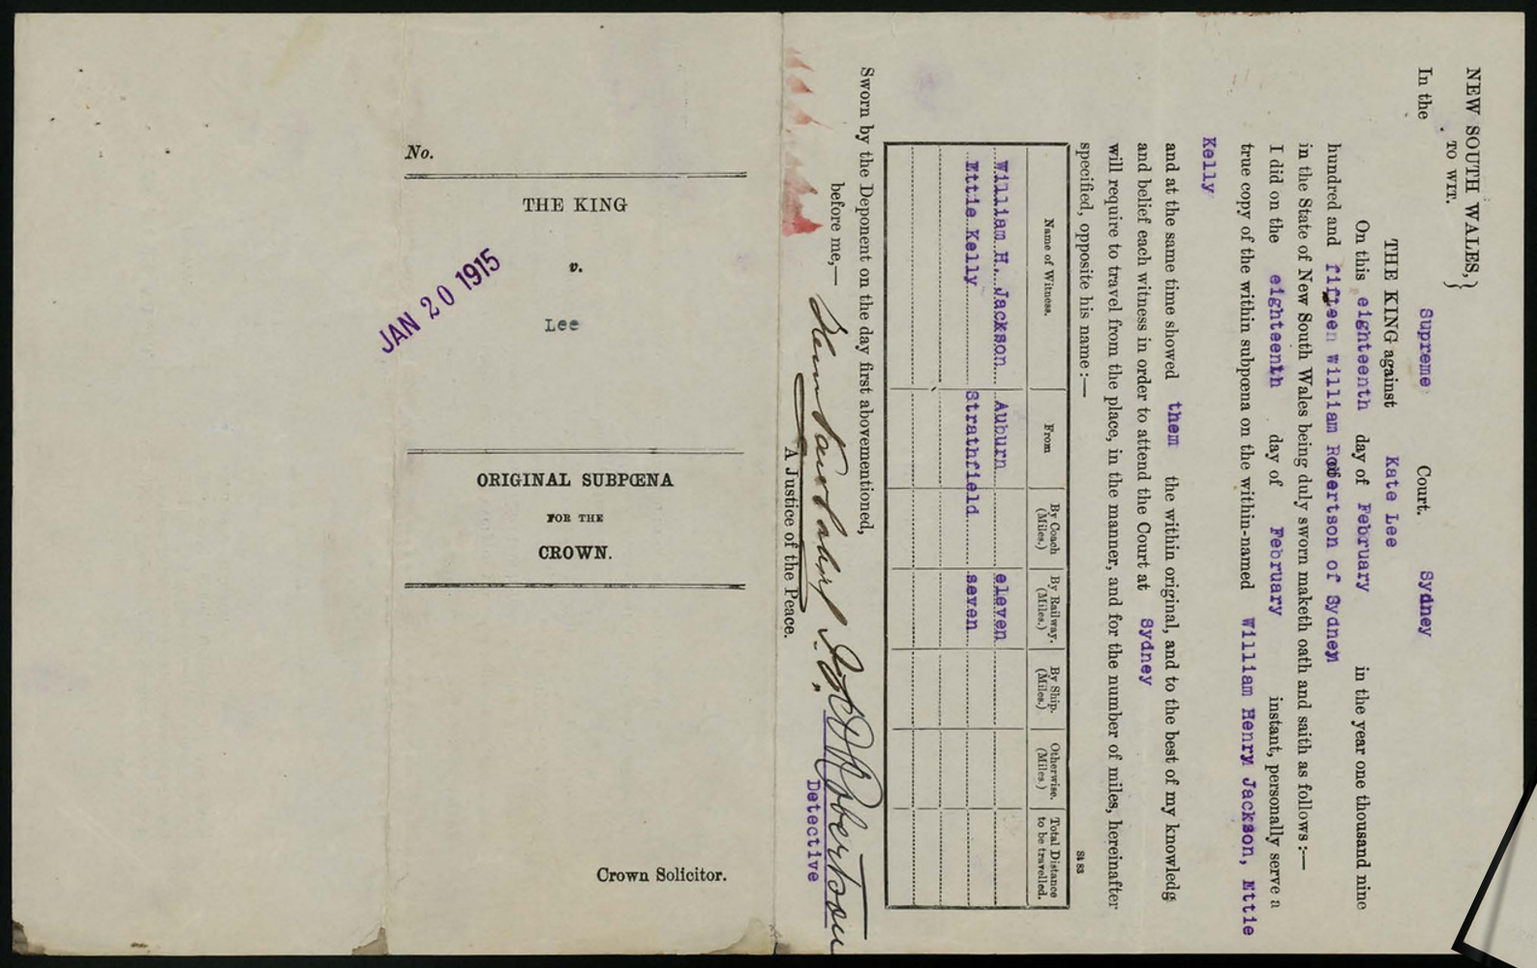 No.
THE KING
v.
JAN 20 1915
Lee
ORIGINAL SUBPŒNA
FOR THE
CROWN.
Crown Solicitor.
NEW SOUTH WALES, }
TO WIT. }
In the Supreme Court. Sydney
THE KING against Kate Lee
On this eighteenth day of February in the year one thousand nine
hundred and fifteen William Robertson of Sydney
in the State of New South Wales being duly sworn maketh oath and saith as follows:—
I did on the eighteenth day of February instant, personally serve a
true copy of the within subpœna on the within-named William Henry Jackson, Ettie
Kelly
and at the same time showed them the within original, and to the best of my knowledg
and belief each witness in order to attend the Court at Sydney
will require to travel from the place, in the manner, and for the number of miles, hereinafter
specified, opposite his name:—
St 83
Name of Witness. From By Coach (Miles.) By Railway. (Miles.) By Ship. (Miles.) Otherwise. (Miles.) Total Distance to be travelled.
William H. Jackson Auburn eleven
Ettie Kelly Strathfield seven
Sworn by the Deponent on the day first abovementioned,
before me,—
Robertson
Detective
A Justice of the Peace.